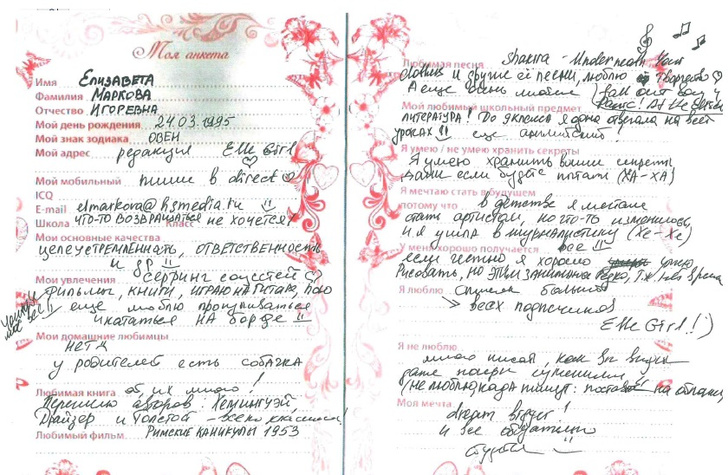 Моя анкета
Имя ЕЛИЗАВЕТА
Фамилия МАРКОВА
Отчество ИГОРЕВНА
Мой день рождения 24.03.1995
Мой знак зодиака ОВЕН
Мой адрес редакция Elle Girl
Мой мобильный пиши в direct
ICQ
E-mail elmarkova@hsmedia.ru
Школа что-то возвращаться не хочется Класс
Мои основные качества
ЦЕЛЕУСТРЕМЛЕННОСТЬ, ОТВЕТСТВЕННОСТЬ
и др
Мои увлечения СЕРФИНГ СОЦСЕТЕЙ
ФИЛЬМЫ, КНИГИ, ИГРАЮ НА ГИТАРЕ, ПОЮ
еще люблю прогуливаться
и кататься НА борде
Мои домашние любимцы
НЕТ
у родителей есть СОБАКА
Любимая книга ох их много!
Перешлю авторов: Хемингуэй
Драйзер и Толстой - всеми
Любимый фильм РИМСКИЕ КАНИКУЛЫ 1953
Любимая песня Shakira - Underneath Your
Clothes и другие её песни, люблю её творчество
А еще очень люблю Fall out boy и
Panic! At the Disco
Мой любимый школьный предмет
ЛИТЕРАТУРА! До я одна отвечала на всех
уроках!! еще английский.
Я умею / не умею хранить секреты
Я умею хранить ваши секреты
даже если будете пытать (ХА-ХА)
Я мечтаю стать в будущем
потому что в детстве я мечтала
стать артистом, но что-то изменилось
и я ушла в журналистику (Хе-Хе)
У меня хорошо получается все!!
если честно я хорошо умею
Рисовать, но этим занимаюсь Редко, т.к. нет времени
Я люблю слишком большой
всех подписчиков
Elle Girl!:)
Я не люблю
много писать, как вы видите
даже почерк
(НЕ люблю) когда пишут:
Моя мечта
dream bigger!
и все обязательно
сбудется